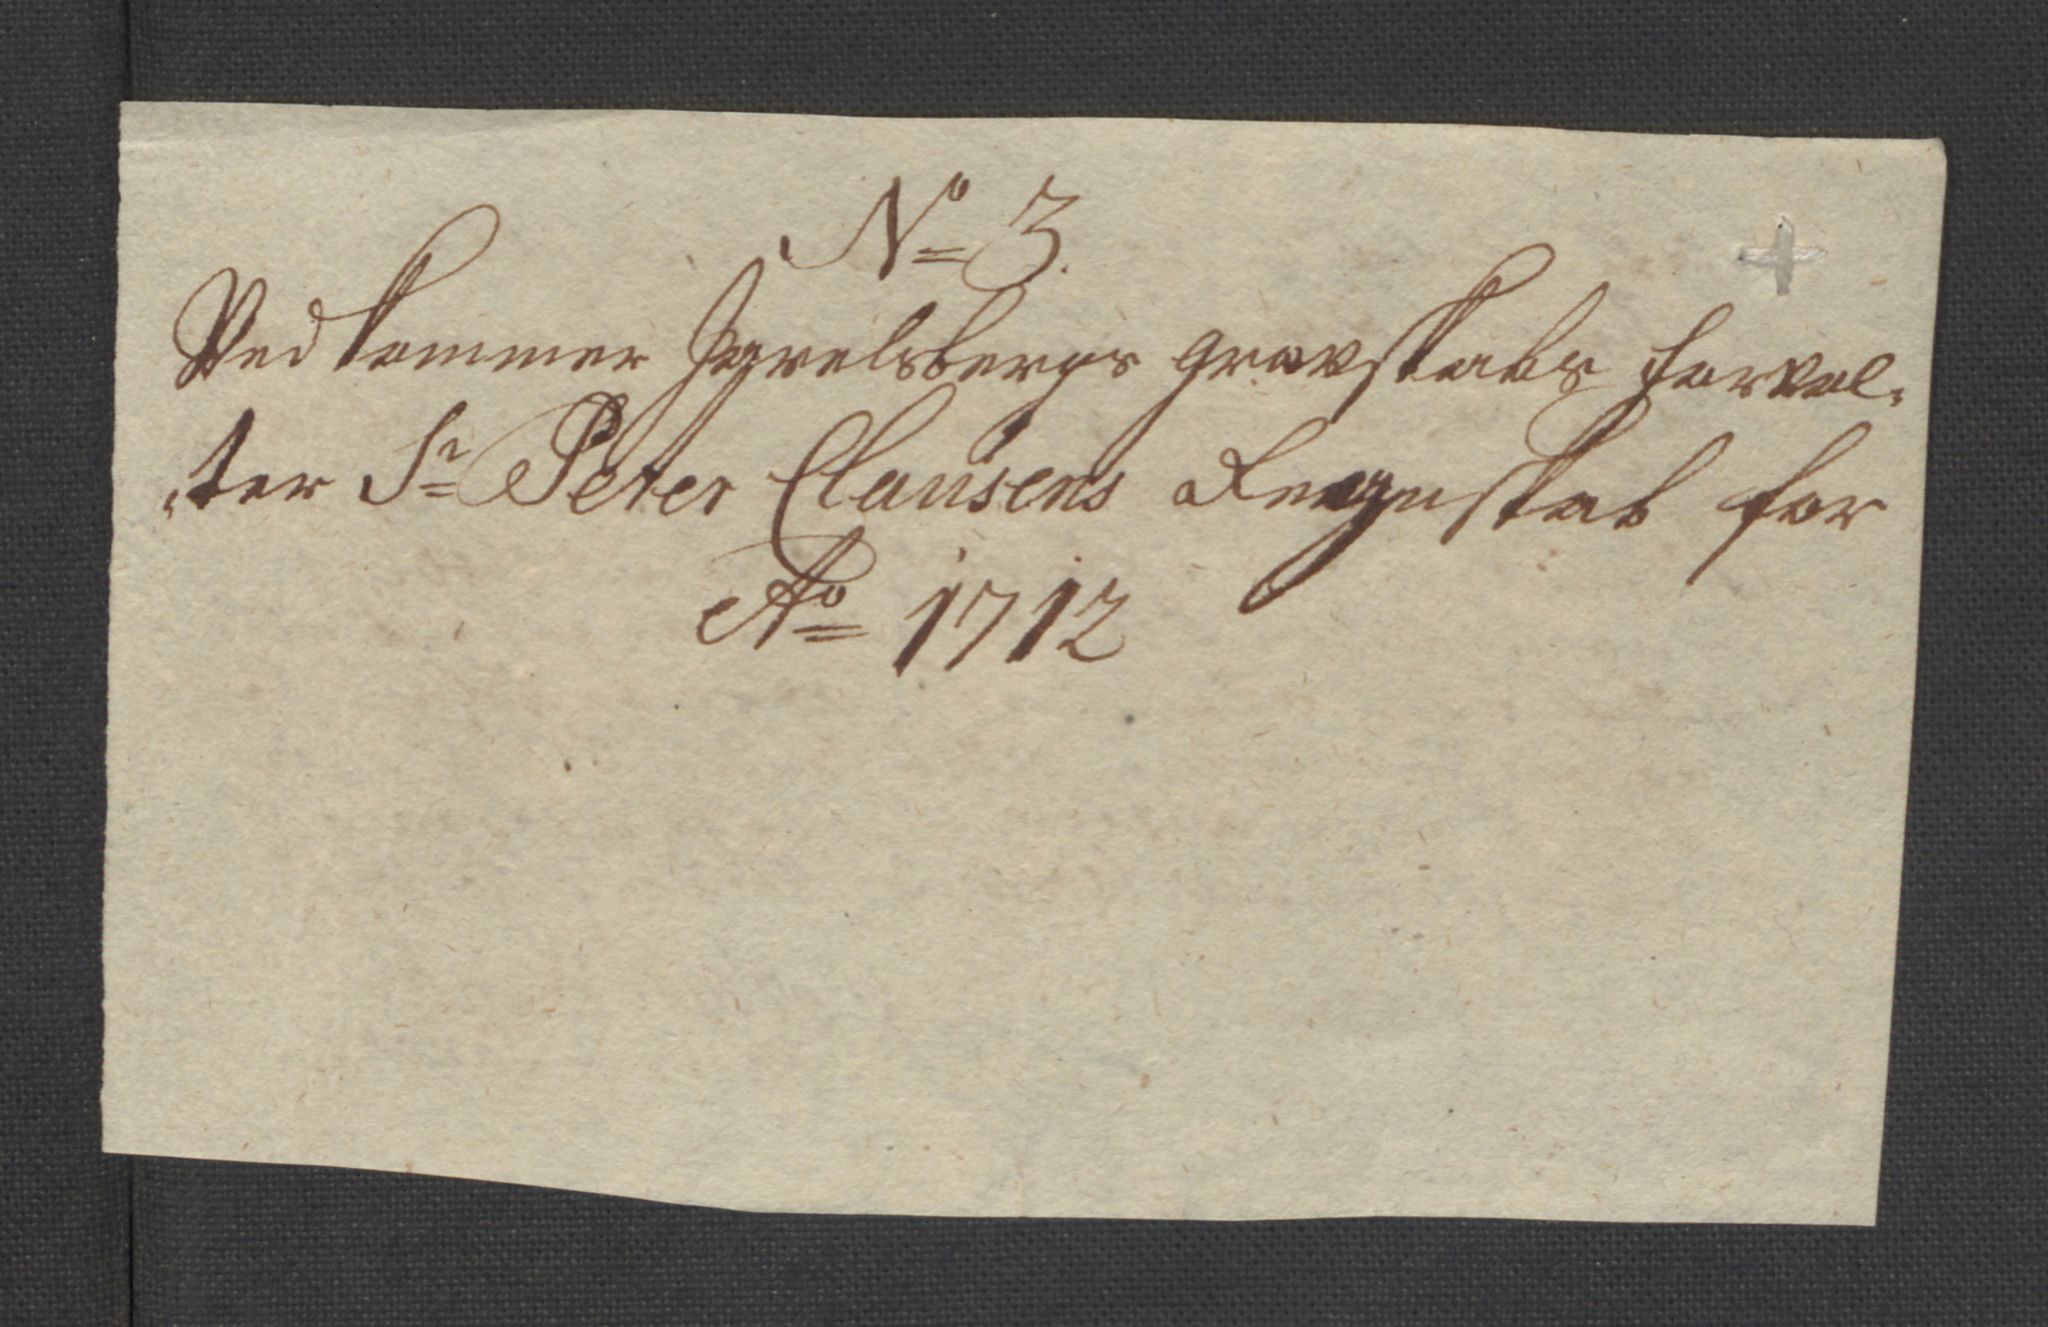 No 3.
Vedkommer Jarelsbergs Gravskabs Forval-
ter Sr Peter Clausens Regnskab for
Ao 1712